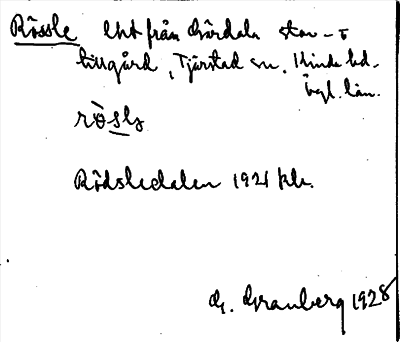 Rössle Ukt från Gärdala stor- o
lillgård, Tjärstad sn. Kinda hd.
Ögl. län.
rösly
Rödsledalen 1921 kk.
G. Granberg 1928